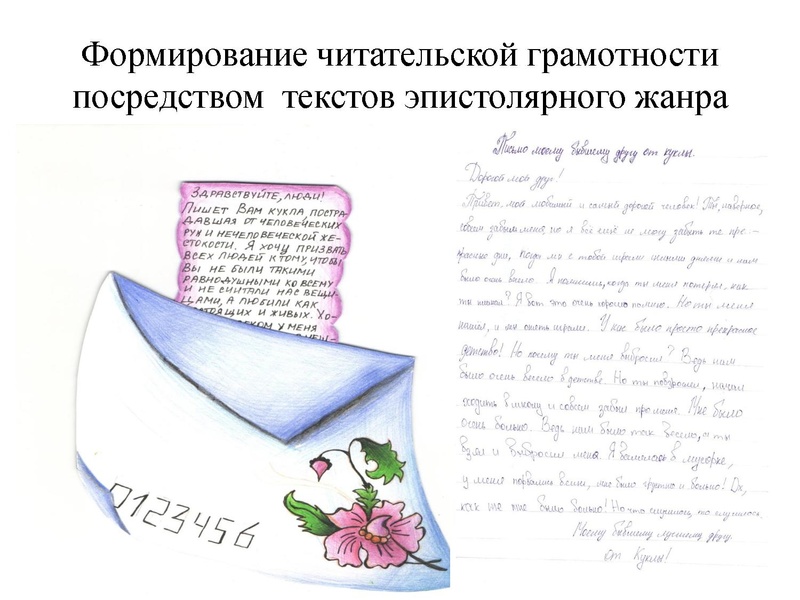 Формирование читательской грамотности
посредством текстов эпистолярного жанра
ЗДРАВСТВУЙТЕ, ЛЮДИ!
ПИШЕТ ВАМ КУКЛА ПОСТРА-
ДАВШАЯ ОТ ЧЕЛОВЕЧЕСКИХ
РУК И НЕЧЕЛОВЕЧЕСКОЙ ЖЕ-
СТОКОСТИ. Я ХОЧУ ПРИЗВАТЬ
ВСЕХ ЛЮДЕЙ К ТОМУ, ЧТОБЫ
ВЫ НЕ БЫЛИ ТАКИМИ
РАВНОДУШНЫМИ КО ВСЕМУ
И НЕ СЧИТАЛИ НАС ВЕЩИ-
ЦАМИ, А ЛЮБИЛИ КАК
СТОЯЩИХ И ЖИВЫХ. ХО-
У МЕНЯ
0123456
Письмо моему бывшему другу от куклы.
Дорогой мой друг!
Привет, мой любимый и самый дорогой человек! Ты, наверное,
совсем забыл меня, но я всё ещё не могу забыть те пре-
красные дни, когда мы с тобой играли и нам
было очень весело. А помнишь, когда ты меня потерял, как
ты ? А вот это очень хорошо помню. Но ты меня
нашел, и мы опять играли. У нас было просто прекрасное
детство! Но почему ты меня выбросил? Ведь нам
было очень весело в детстве. Но ты повзрослел, начал
ходить в школу и совсем забыл про меня. Мне было
очень больно. Ведь нам было так весело, а ты
взял и выбросил меня. Я валялась в мусорке,
у меня порвались , мне было грустно и больно! Ох,
как же мне было больно! Но что случилось, то случилось.
Моему бывшему лучшему другу.
от Куклы!